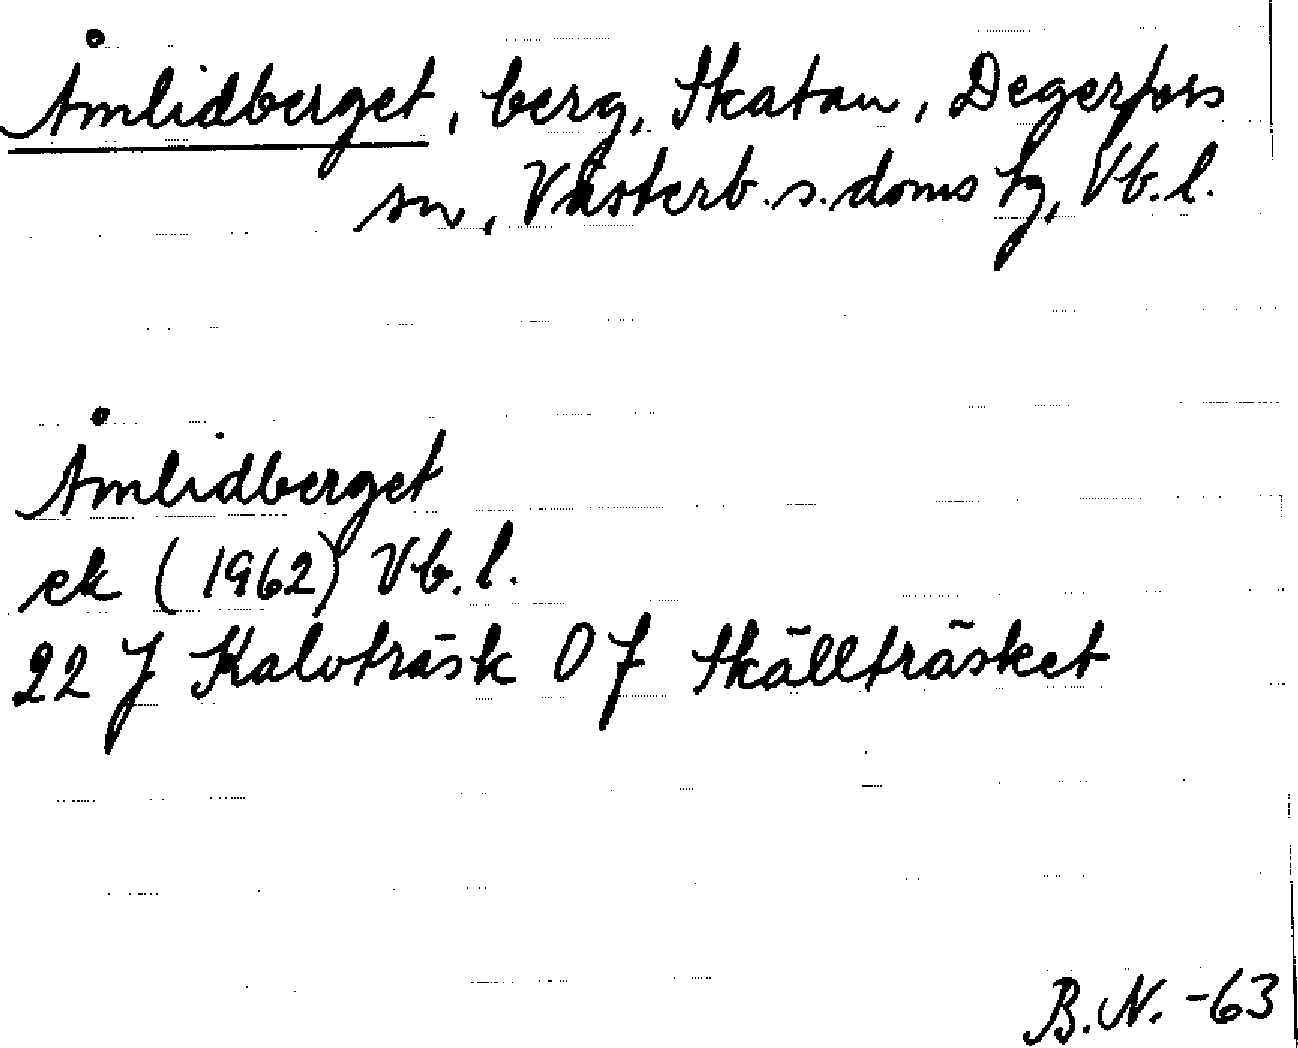 Åmlidberget, berg, Skatan, Degerfors
sn, Västerb. s. doms tg, Vb. l.
Åmlidberget
ek (1962) Vb. l.
22 J Kalvträsk 0 f Skällträsket
B.N. -63